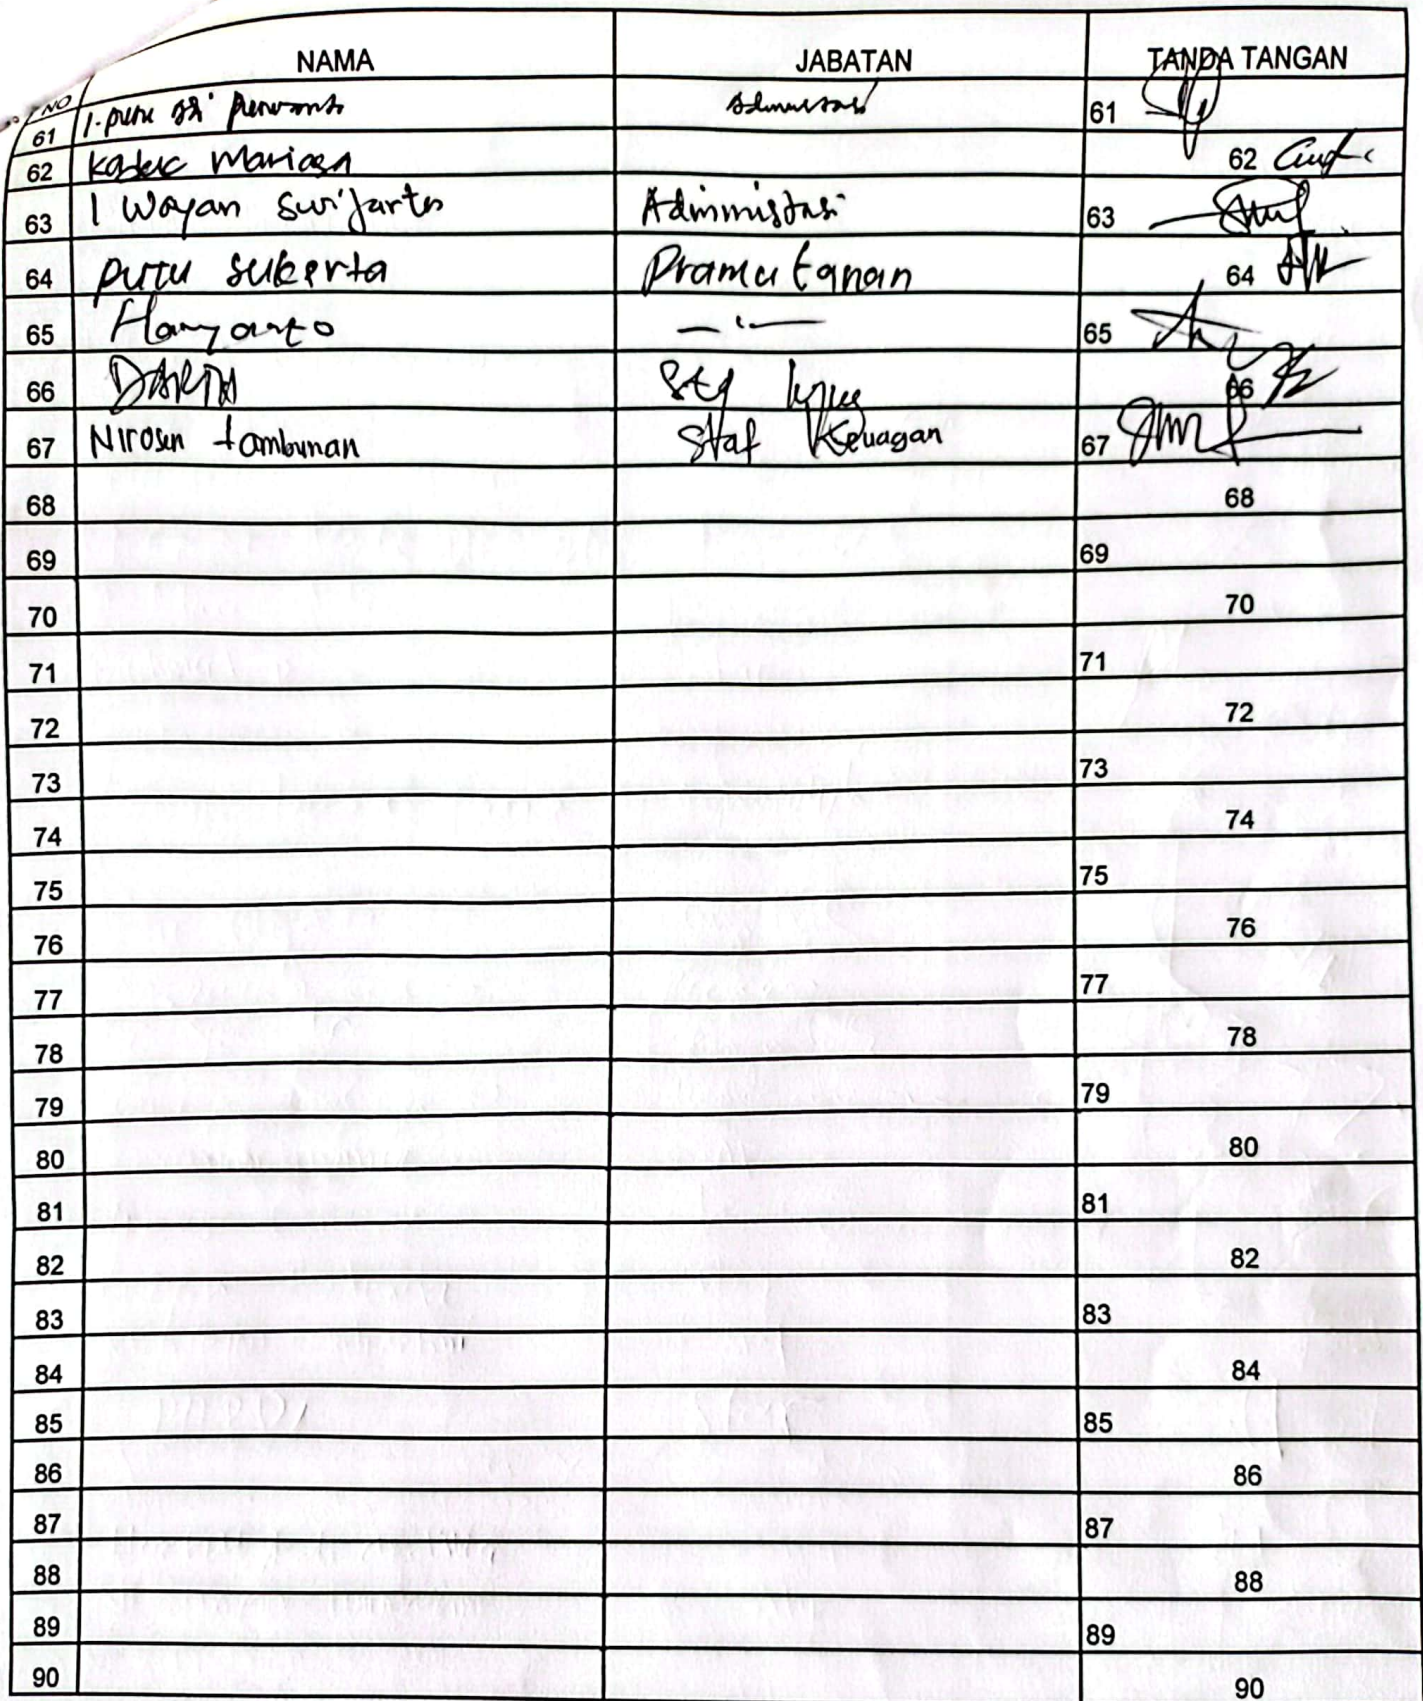 NO NAMA JABATAN TANDA TANGAN
61 I. putu 61
62 Kadek Mariasa 62
63 I Wayan Swijarta Administrasi 63
64 putu sukerta Pramutanan 64
65 Haryanto — ı — 65
66 DARTA 66
67 Nirosen tambunan Staf Keuagan 67
68 68
69 69
70 70
71 71
72 72
73 73
74 74
75 75
76 76
77 77
78 78
79 79
80 80
81 81
82 82
83 83
84 84
85 85
86 86
87 87
88 88
89 89
90 90